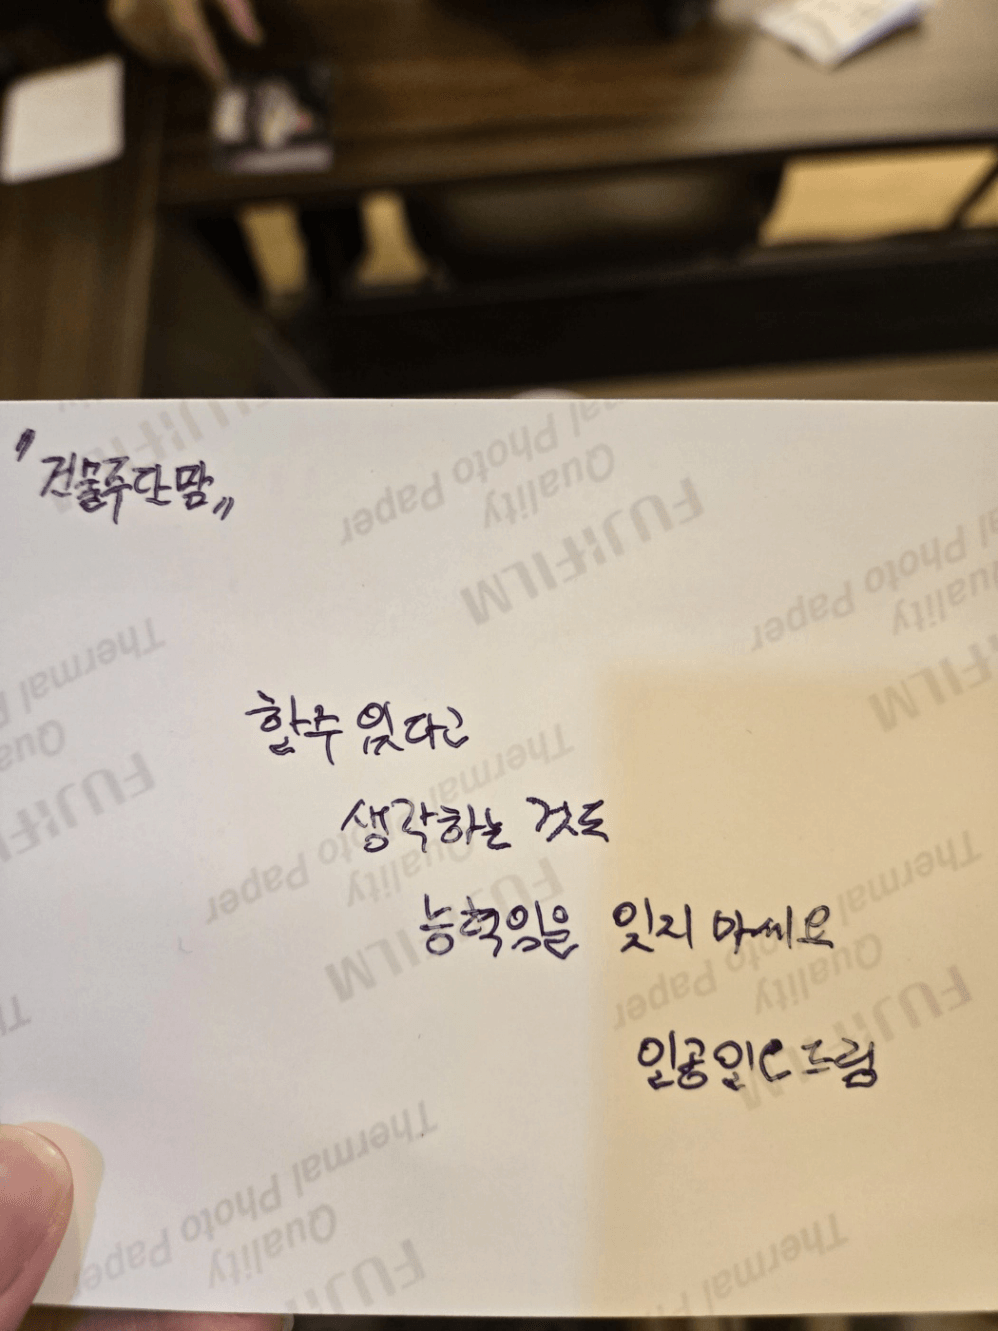 "건물주단맘"
할수 있다고
생각하는 것도
능력임을 잊지 마세요
일공일C드림
FUJIFILM
Quality
Thermal Photo Paper